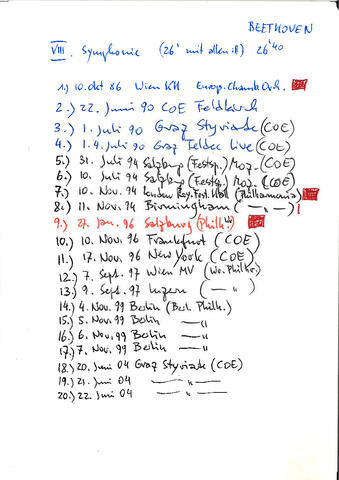 BEETHOVEN
VIII. Symphonie (26' mit allen :||) 26'40
1.) 10. Okt 86 Wien KH Europ. Chamb. Orch.
2.) 22. Juni 90 COE Feldkirch
3.) 1. Juli 90 Graz Styriarte (COE)
4.) 1.4. Juli 90 Graz Teldec live (COE)
5.) 31. Juli 94 Salzburg (Festsp.) Moz. (COE)
6.) 10. Juli 94 Salzburg (Festsp.) Moz. (COE)
7.) 10. Nov. 94 London Roy. Fest. Hall (Philharmonia)
8.) 11. Nov. 94 Birmingham (—„—)
9.) 27. Jan. 96 Salzburg (Philh.)
10.) 10. Nov. 96 Frankfurt (COE)
11.) 17. Nov. 96 New York (COE)
12.) 7. Sept. 97 Wien MV (Wr. Philh.)
13.) 9. Sept. 97 Luzern (—„—)
14.) 4. Nov. 99 Berlin (Berl. Philh.)
15.) 5. Nov. 99 Berlin —„—
16.) 6. Nov. 99 Berlin —„—
17.) 7. Nov. 99 Berlin —„—
18.) 20. Juni 04 Graz Styriarte (COE)
19.) 21. Juni 04 —„—
20.) 22. Juni 04 —„—